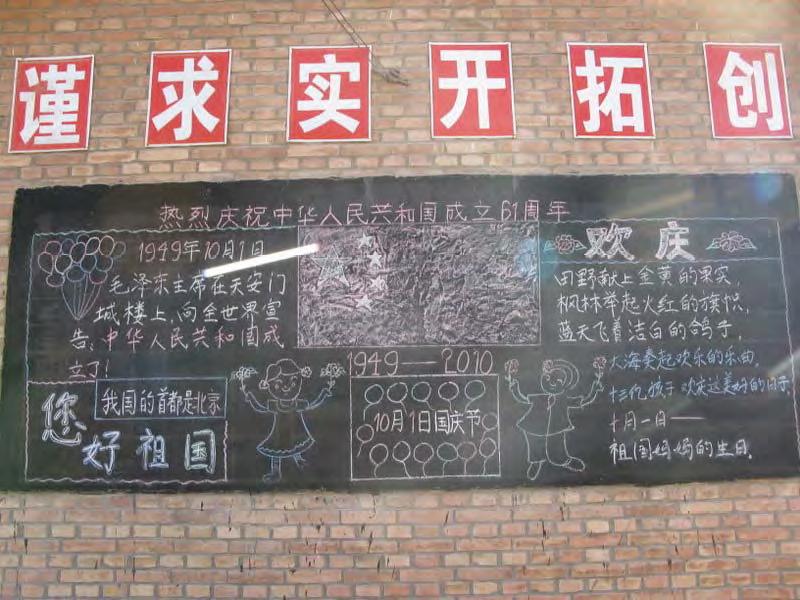 谨求实开拓创
热烈庆祝中华人民共和国成立61周年
1949年10月1日
毛泽东主席在天安门
城楼上,向全世界宣
告:中华人民共和国成
立了!
我国的首都是北京
您
好祖国
1949—2010
10月1日国庆节
欢庆
田野献上金黄的果实,
枫林举起火红的旗帜,
蓝天飞着洁白的鸽子,
大海奏起欢乐的乐曲,
十三亿孩子欢庆这美好的日子,
十月一日——
祖国妈妈的生日。